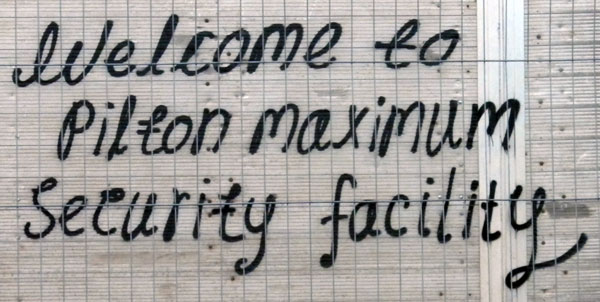 Welcome to
Pilton maximum
Security facility